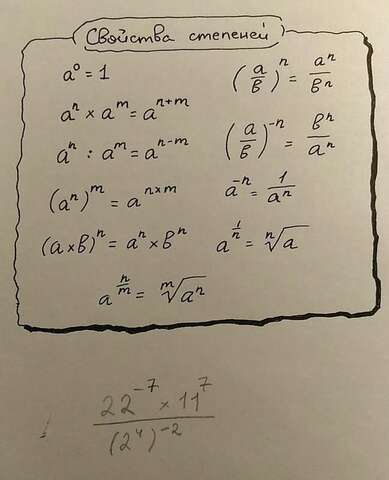 Свойства степеней
a⁰ = 1
(a/b)ⁿ = aⁿ/bⁿ
aⁿ × aᵐ = aⁿ⁺ᵐ
(a/b)⁻ⁿ = bⁿ/aⁿ
aⁿ : aᵐ = aⁿ⁻ᵐ
a⁻ⁿ = 1/aⁿ
(aⁿ)ᵐ = aⁿˣᵐ
(a × b)ⁿ = aⁿ × bⁿ
a^(1/n) = ⁿ√a
a^(n/m) = ᵐ√aⁿ
22⁻⁷ × 11⁷
(2⁴)⁻²